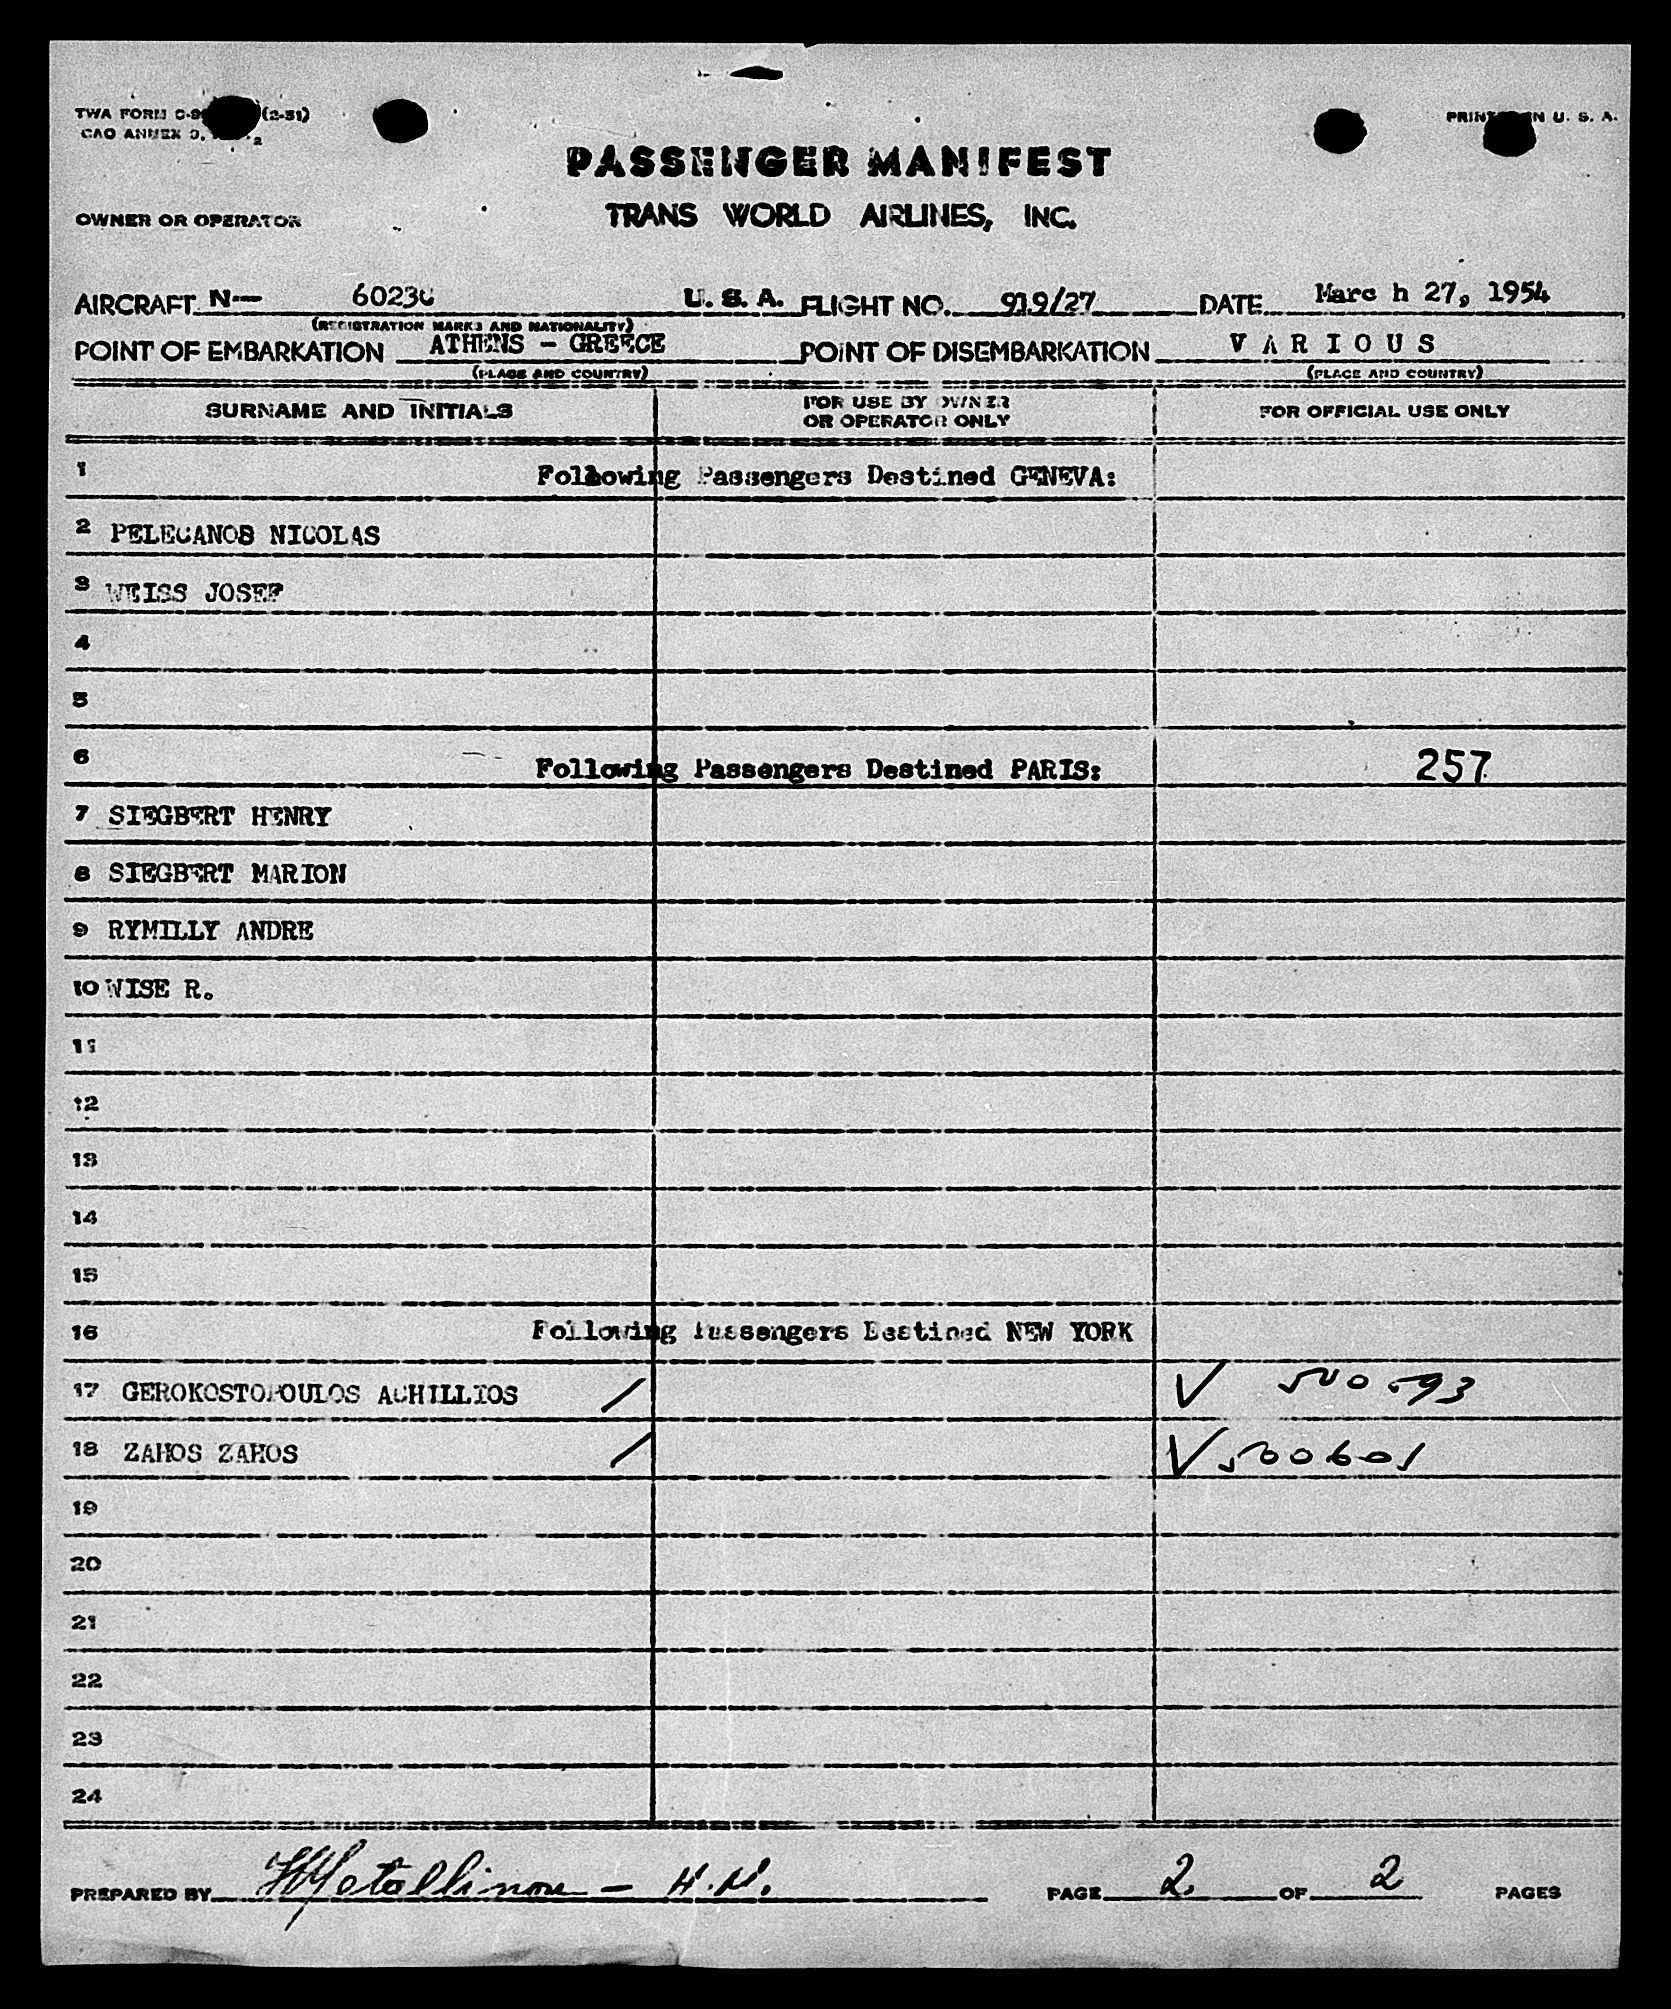 TWA FORM (2-51)
PRINTED IN U. S. A.
PASSENGER MANIFEST
OWNER OR OPERATOR TRANS WORLD AIRLINES, INC.
AIRCRAFT N— U. S. A. FLIGHT NO. 919/27 DATE Marc h 27, 1954
(REGISTRATION MARKS AND NATIONALITY)
POINT OF EMBARKATION ATHENS - GREECE POINT OF DISEMBARKATION V A R I O U S
(PLACE AND COUNTRY) (PLACE AND COUNTRY)
SURNAME AND INITIALS FOR USE BY OWNER OR OPERATOR ONLY FOR OFFICIAL USE ONLY
1 Following Passengers Destined GENEVA:
2 PELECANOS NICOLAS
3 WEISS JOSEF
4
5
6 Following Passengers Destined PARIS: 257
7 SIEGBERT HENRY
8 SIEGBERT MARION
9 RYMILLY ANDRE
10 WISE R.
11
12
13
14
15
16 Following Passengers Destined NEW YORK
17 GEROKOSTOPOULOS ACHILLIOS / V 500593
18 ZAHOS ZAHOS / V 500601
19
20
21
22
23
24
PREPARED BY PAGE 2 OF 2 PAGES